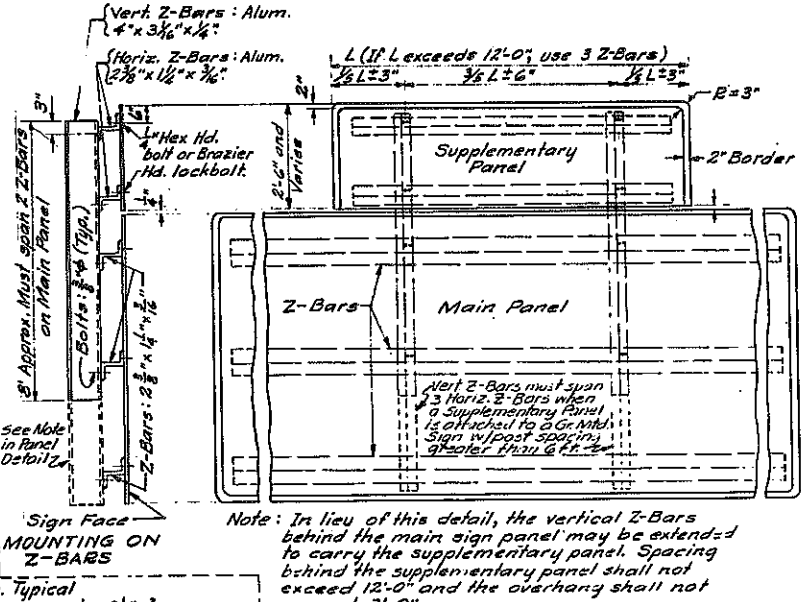 Vert. Z-Bars : Alum.
4" x 3 1/16" x 1/4"
Horiz. Z-Bars : Alum.
2 3/8" x 1 1/4" x 3/16"
L (If L exceeds 12'-0", use 3 Z-Bars)
1/5 L ± 3"
3/5 L ± 6"
1/5 L ± 3"
3"
6"
2"
R = 3"
1/4" Hex Hd.
bolt or Brazier
Hd. lockbolt.
2'-6" and
Varies
Supplementary
Panel
2" Border
1/4"
8' Approx. Must span 2 Z-Bars
on Main Panel
Bolts: 3/8" φ (Typ.)
Z-Bars: 2 3/8" x 1 1/4" x 3/16"
Z-Bars
Main Panel
Vert Z-Bars must span
3 Horiz. Z-Bars when
a Supplementary Panel
is attached to a Gr. Mtd.
Sign w/post spacing
greater than 6 ft.
See Note
in Panel
Detail
Sign Face
MOUNTING ON
Z-BARS
Note : In lieu of this detail, the vertical Z-Bars
behind the main sign panel may be extended
to carry the supplementary panel. Spacing
behind the supplementary panel shall not
exceed 12'-0" and the overhang shall not
. Typical